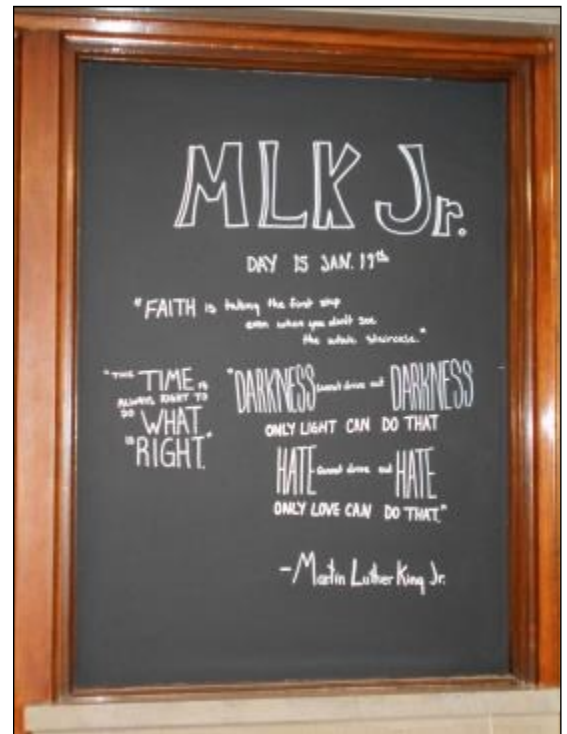 MLK Jr.
DAY IS JAN. 19th
"FAITH is taking the first step
even when you don't see
the whole staircase."
"THE TIME IS
ALWAYS RIGHT TO
DO WHAT
IS RIGHT."
"DARKNESS cannot drive out DARKNESS
ONLY LIGHT CAN DO THAT
HATE cannot drive out HATE
ONLY LOVE CAN DO THAT."
-Martin Luther King Jr.